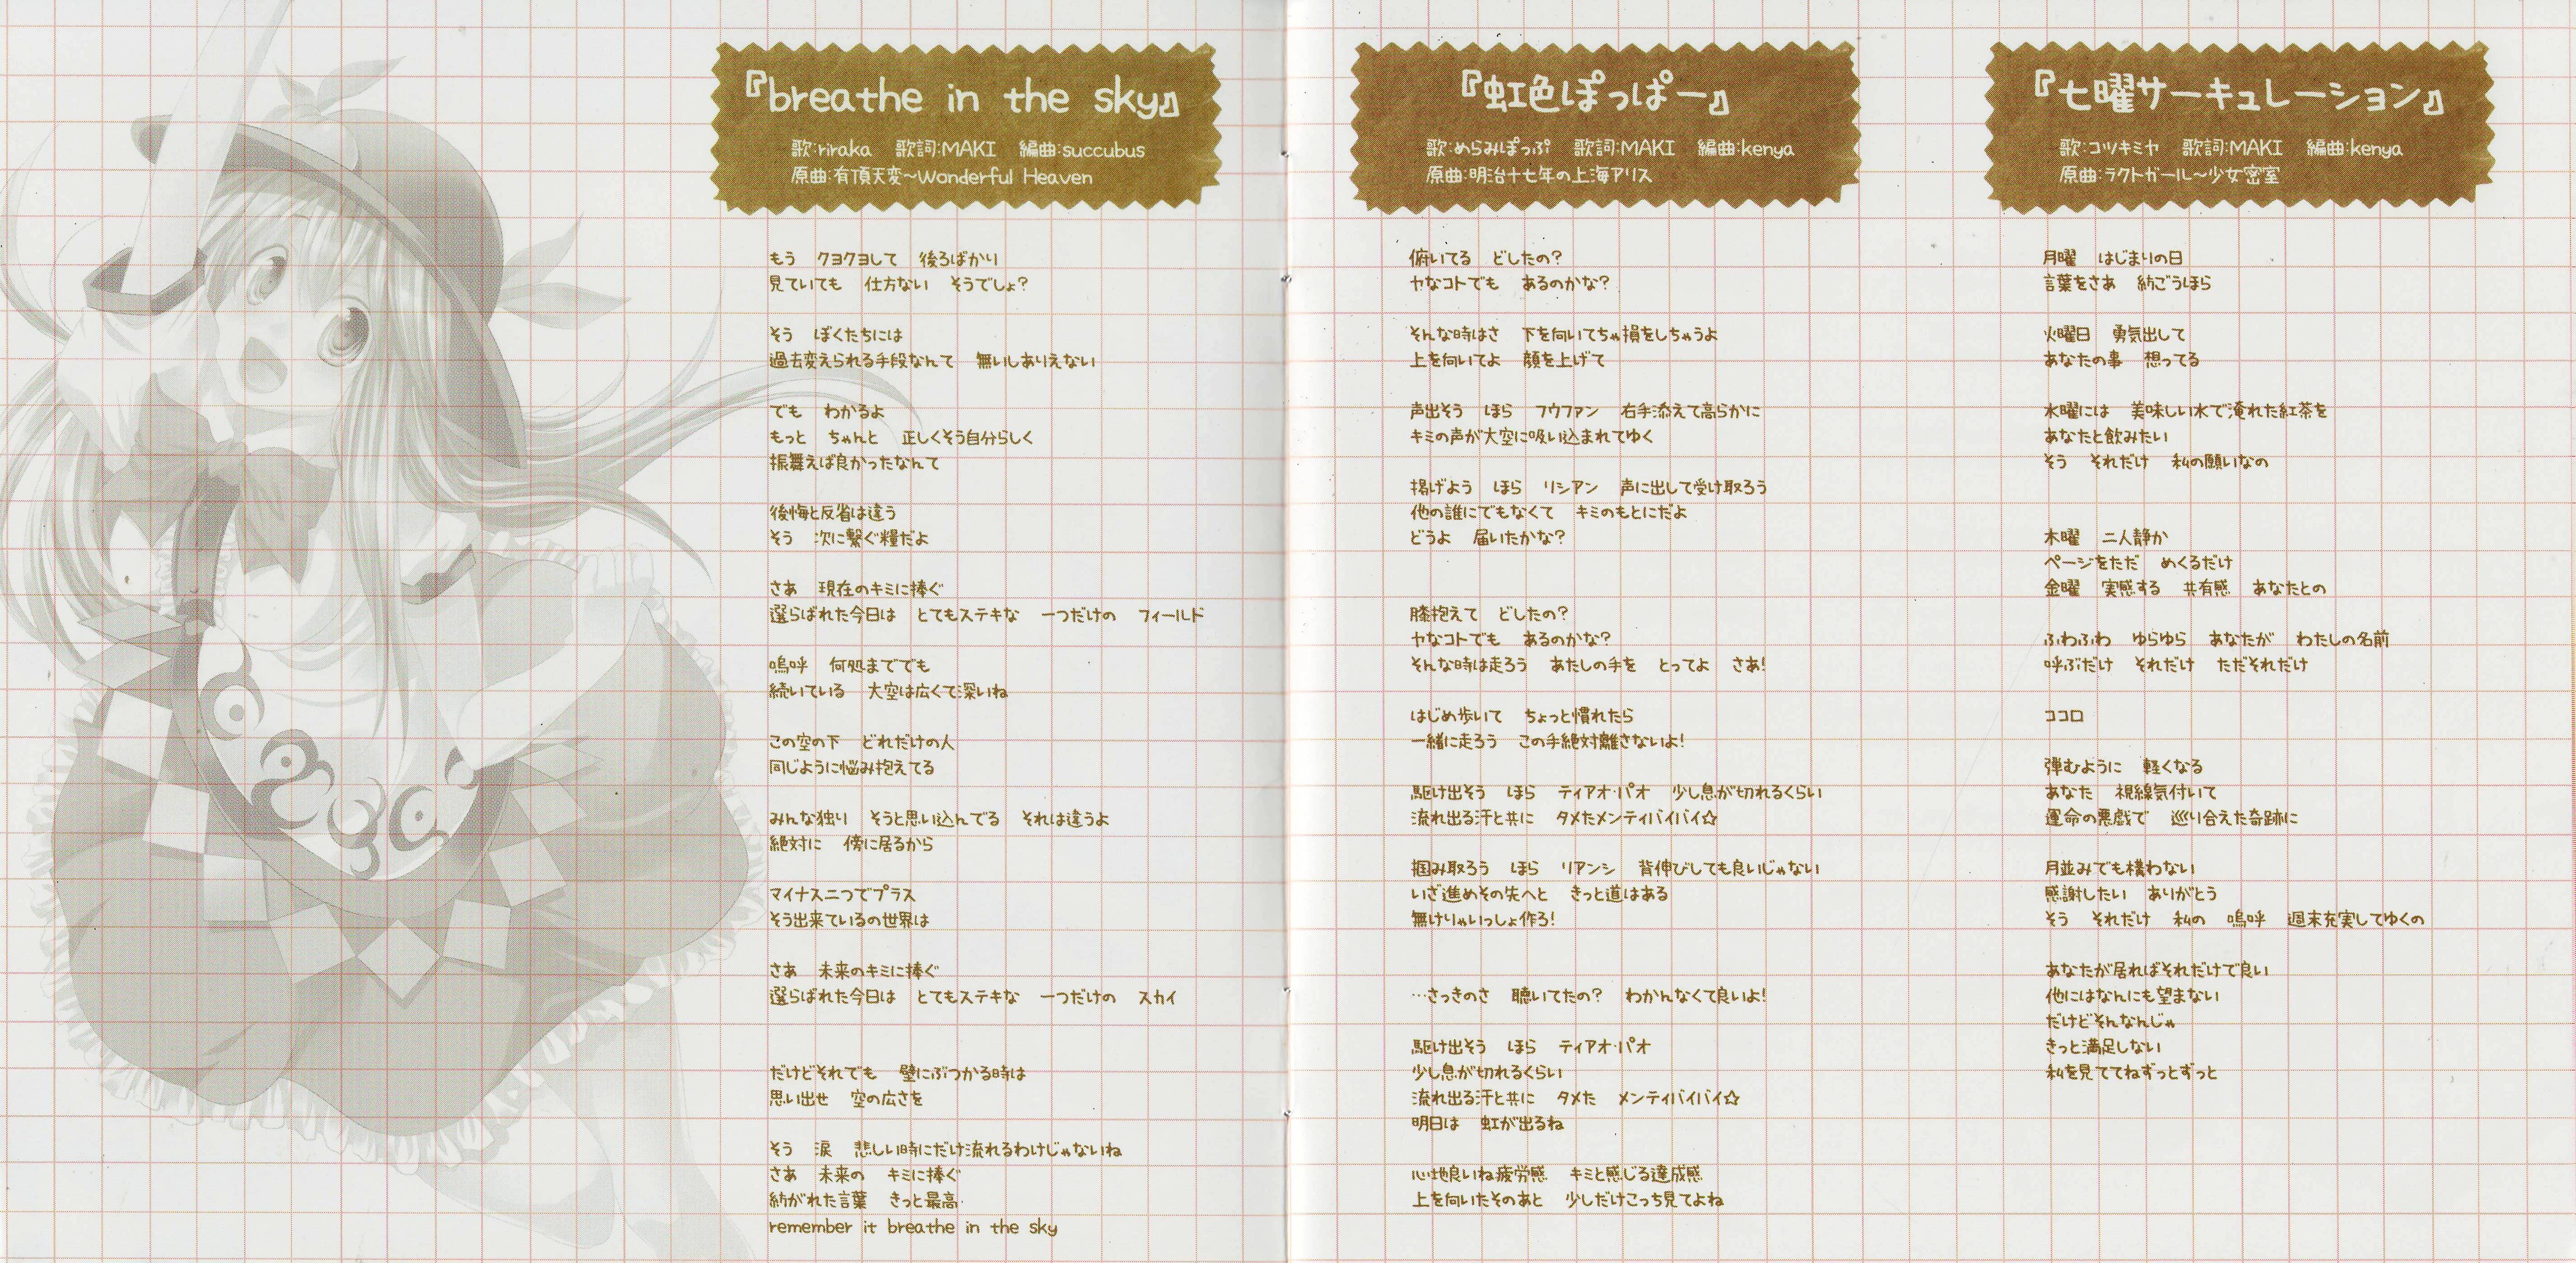 『breathe in the sky』
歌:riraka 歌詞:MAKI 編曲:succubus
原曲:有頂天変～Wonderful Heaven
もう クヨクヨして 後ろばかり
見ていても 仕方ない そうでしょ?
そう ぼくたちには
過去変えられる手段なんて 無いしありえない
でも わかるよ
もっと ちゃんと 正しくそう自分らしく
振舞えば良かったなんて
後悔と反省は違う
そう 次に繋ぐ糧だよ
さあ 現在のキミに捧ぐ
選らばれた今日は とてもステキな 一つだけの フィールド
嗚呼 何処まででも
続いている 大空は広くて深いね
この空の下 どれだけの人
同じように悩み抱えてる
みんな独り そうと思い込んでる それは違うよ
絶対に 傍に居るから
マイナス二つでプラス
そう出来ているの世界は
さあ 未来のキミに捧ぐ
選らばれた今日は とてもステキな 一つだけの スカイ
だけどそれでも 壁にぶつかる時は
思い出せ 空の広さを
そう 涙 悲しい時にだけ流れるわけじゃないね
さあ 未来の キミに捧ぐ
紡がれた言葉 きっと最高
remember it breathe in the sky
『虹色ぽっぱー』
歌:めらみぽっぷ 歌詞:MAKI 編曲:kenya
原曲:明治十七年の上海アリス
俯いてる どしたの?
ヤなコトでも あるのかな?
そんな時はさ 下を向いてちゃ損をしちゃうよ
上を向いてよ 顔を上げて
声出そう ほら フウファン 右手添えて高らかに
キミの声が大空に吸い込まれてゆく
掲げよう ほら リシアン 声に出して受け取ろう
他の誰にでもなくて キミのもとにだよ
どうよ 届いたかな?
膝抱えて どしたの?
ヤなコトでも あるのかな?
そんな時は走ろう あたしの手を とってよ さあ!
はじめ歩いて ちょっと慣れたら
一緒に走ろう この手絶対離さないよ!
駆け出そう ほら ティアオ・パオ 少し息が切れるくらい
流れ出る汗と共に タメたメンティバイバイ☆
掴み取ろう ほら リアンシ 背伸びしても良いじゃない
いざ進めその先へと きっと道はある
無けりゃいっしょ作ろ!
…さっきのさ 聴いてたの? わかんなくて良いよ!
駆け出そう ほら ティアオ・パオ
少し息が切れるくらい
流れ出る汗と共に タメた メンティバイバイ☆
明日は 虹が出るね
心地良いね疲労感 キミと感じる達成感
上を向いたそのあと 少しだけこっち見てよね
『七曜サーキュレーション』
歌:コツキミヤ 歌詞:MAKI 編曲:kenya
原曲:ラクトガール～少女密室
月曜 はじまりの日
言葉をさあ 紡ごうほら
火曜日 勇気出して
あなたの事 想ってる
水曜には 美味しい水で淹れた紅茶を
あなたと飲みたい
そう それだけ 私の願いなの
木曜 二人静か
ページをただ めくるだけ
金曜 実感する 共有感 あなたとの
ふわふわ ゆらゆら あなたが わたしの名前
呼ぶだけ それだけ ただそれだけ
ココロ
弾むように 軽くなる
あなた 視線気付いて
運命の悪戯で 巡り合えた奇跡に
月並みでも構わない
感謝したい ありがとう
そう それだけ 私の 嗚呼 週末充実してゆくの
あなたが居ればそれだけで良い
他にはなんにも望まない
だけどそんなんじゃ
きっと満足しない
私を見ててねずっとずっと